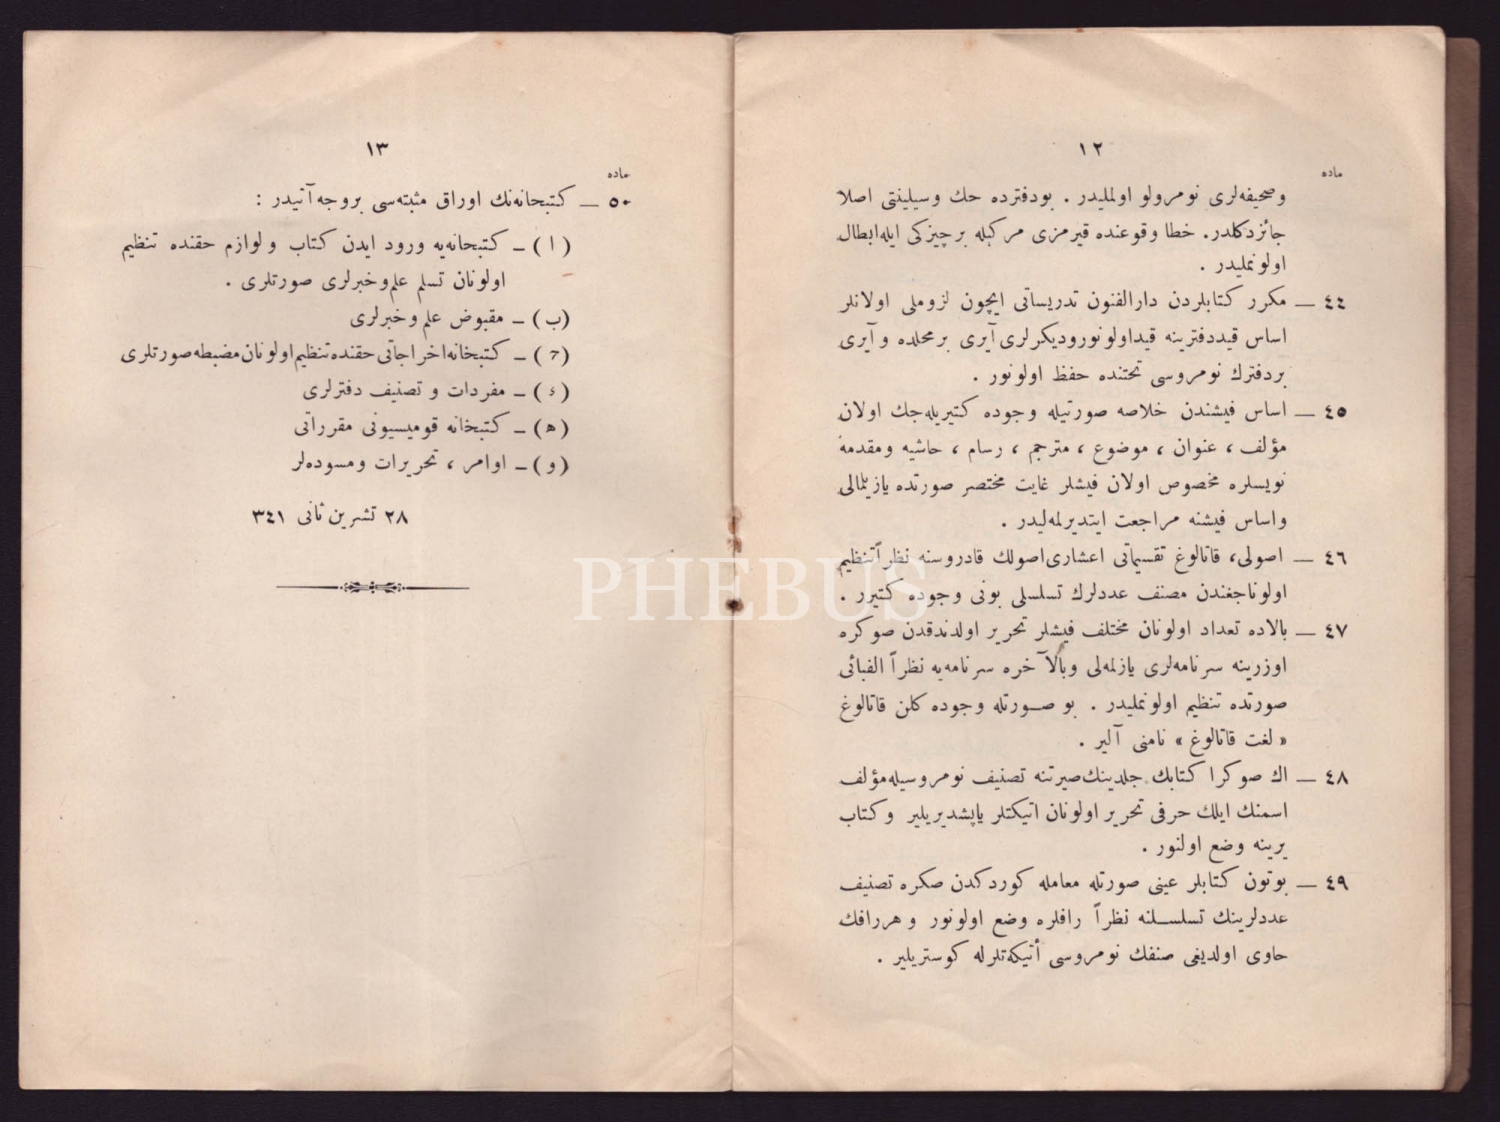 ١٢
ماده
وصحیفه‌لری نومرولو اولملیدر . بودفترده حك وسیلینتی اصلا
جائزدكلدر. خطا وقوعنده قیرمزی مركبله برچیزكی ایله‌ابطال
اولونملیدر .
٤٤ — مكرر كتابلردن دارالفنون تدریساتی ایچون لزوملی اولانلر
اساس قیددفترینه قیداولونورودیكرلری آیری برمحلده وآیری
بردفترك نومروسی تحتنده حفظ اولونور .
٤٥ — اساس فیشندن خلاصه صورتیله وجوده كتیریله‌جك اولان
مؤلف ، عنوان ، موضوع ، مترجم ، رسام ، حاشیه ومقدمه
نویسلره مخصوص اولان فیشلر غایت مختصر صورتده یازیلمالی
واساس فیشنه مراجعت ایتدیرلمه‌لیدر .
٤٦ — اصولی، قاتالوغ تقسیماتی اعشاری‌اصولك قادروسنه نظراً‌تنظیم
اولوناجغندن مصنف عددلرك تسلسلی بونی وجوده كتیرر .
٤٧ — بالاده تعداد اولونان مختلف فیشلر تحریر اولدندقدن صوكره
اوزرینه سرنامه‌لری یازلمه‌لی وبالآخره سرنامه‌یه نظراً الفبائی
صورتده تنظیم اولونملیدر . بو صورتله وجوده كلن قاتالوغ
« لغت قاتالوغ » نامنی آلیر .
٤٨ — اك صوكرا كتابك جلدینك‌صیرتنه تصنیف نومروسیله‌مؤلف
اسمنك ایلك حرفی تحریر اولونان اتیكتلر یاپشدیریلیر وكتاب
یرینه وضع اولنور .
٤٩ — بوتون كتابلر عینی صورتله معامله كوردكدن صكره تصنیف
عددلرینك تسلسلنه نظراً رافلره وضع اولونور وهررافك
حاوی اولدیغی صنفك نومروسی أتیكه‌تلرله كوستریلیر .
١٣
ماده
٥٠ — كتبخانه‌نك اوراق مثبته‌سی بروجه‌آتیدر :
(ا) — كتبخانه‌یه ورود ایدن كتاب ولوازم حقنده تنظیم
اولونان تسلم علم‌وخبرلری صورتلری .
(ب) — مقبوض علم وخبرلری
(ج) — كتبخانه‌اخراجاتی حقنده‌تنظیم‌اولونان‌مضبطه‌صورتلری
(د) — مفردات و تصنیف دفترلری
(ه) — كتبخانه قومیسیونی مقرراتی
(و) — اوامر ، تحریرات ومسوده‌لر
٢٨ تشرین ثانی ٣٤١
PHEBUS